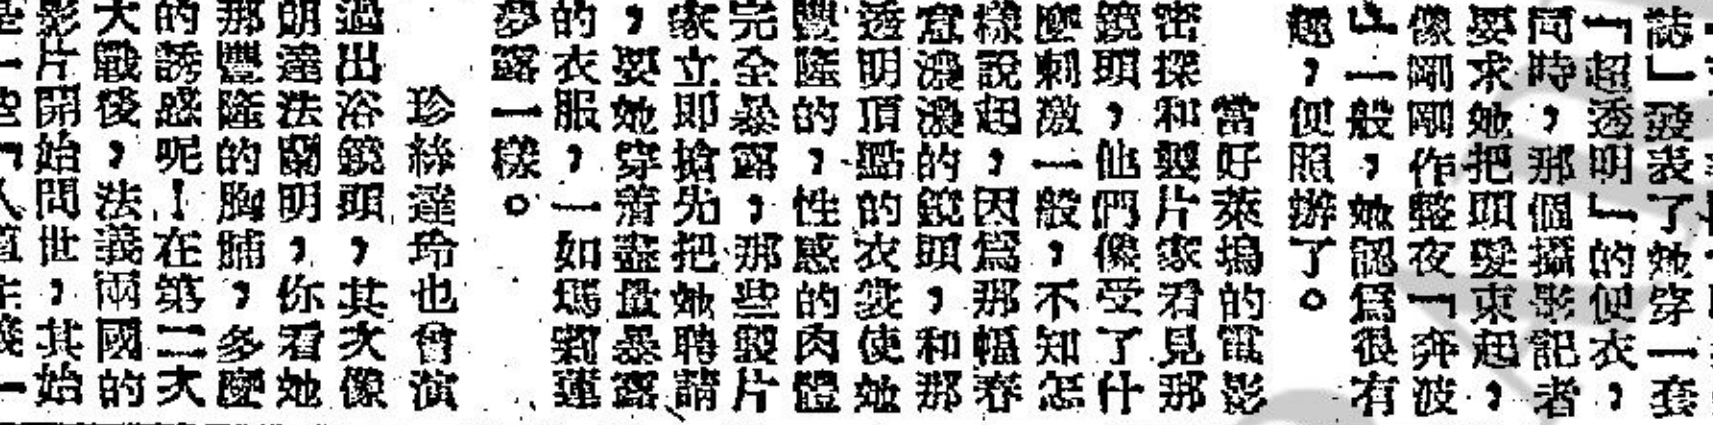 誌」發表了她穿一套
「超透明」的便衣，
同時，那個攝影記者
要求她把頭髮束起，
像剛剛作整夜「奔波
」一般，她認爲很有
趣，便照辦了。
當好萊塢的電影
密探和製片家看見那
鏡頭，他們像受了什
麼刺激一般，不知怎
樣說起，因爲那幅春
意濃濃的鏡頭，和那
透明頂點的衣裳使她
豐隆的，性感的肉體
完全暴露，那些製片
家立即搶先把她聘請
，要她穿着盡量暴露
的衣服，一如瑪麗蓮
夢露一樣。
珍絲達玲也曾演
過出浴鏡頭，其次像
朗達法蘭明，你看她
那豐隆的胸脯，多麼
的誘惑呢！在第二次
大戰後，法義兩國的
影片開始問世，其始